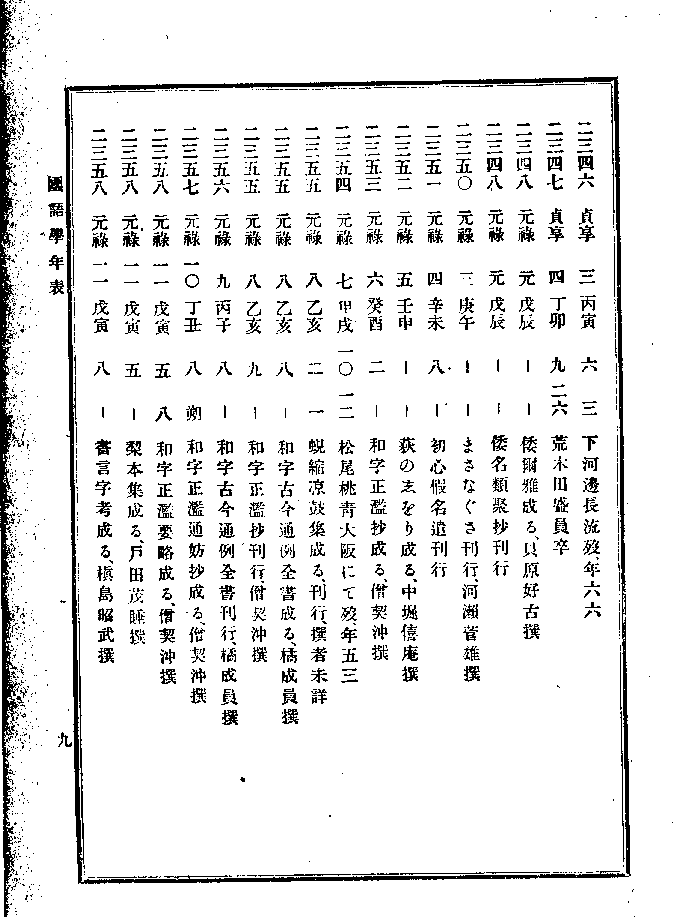 二三四六 貞享 三 丙寅 六 三 下河邊長流歿、年六六
二三四七 貞享 四 丁卯 九 二六 荒木田盛員卒
二三四八 元祿 元 戊辰 ー ー 倭爾雅成る、貝原好古撰
二三四八 元祿 元 戊辰 ー ー 倭名類聚抄刊行
二三五〇 元祿 三 庚午 ー ー まさなぐさ刊行、河瀨菅雄撰
二三五一 元祿 四 辛未 八 ー 初心假名遣刊行
二三五二 元祿 五 壬申 ー ー 萩のゑをり成る、中堀僖庵撰
二三五三 元祿 六 癸酉 二 ー 和字正濫抄成る、僧契沖撰
二三五四 元祿 七 甲戌 一〇 一二 松尾桃靑大阪にて歿、年五三
二三五五 元祿 八 乙亥 二 一 蜆縮凉鼓集成る、刊行、撰者未詳
二三五五 元祿 八 乙亥 八 ー 和字古今通例全書成る、橘成員撰
二三五五 元祿 八 乙亥 九 ー 和字正濫抄刊行、僧契沖撰
二三五六 元祿 九 丙子 八 ー 和字古今通例全書刊行、橘成員撰
二三五七 元祿 一〇 丁丑 八 朔 和字正濫通妨抄成る、僧契沖撰
二三五八 元祿 一一 戊寅 五 八 和字正濫要略成る、僧契沖撰
二三五八 元祿 一一 戊寅 五 ー 梨本集成る、戶田茂睡撰
二三五八 元祿 一一 戊寅 八 ー 書言字考成る、槇島昭武撰
國語學年表
九